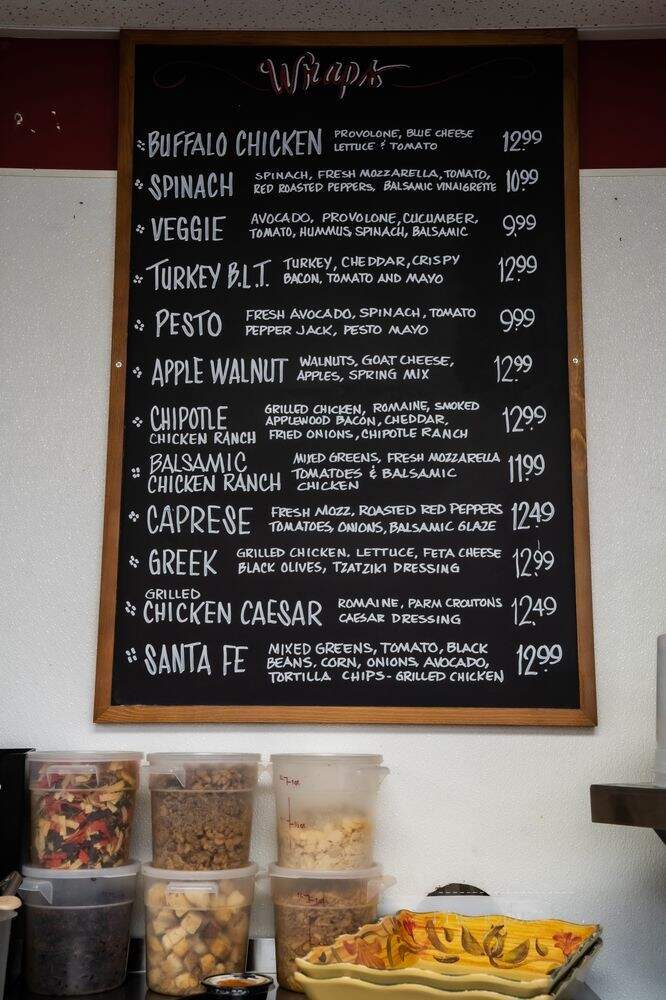 Wraps
BUFFALO CHICKEN PROVOLONE, BLUE CHEESE 12.99
LETTUCE & TOMATO
SPINACH SPINACH, FRESH MOZZARELLA, TOMATO, 10.99
RED ROASTED PEPPERS, BALSAMIC VINAIGRETTE
VEGGIE AVOCADO, PROVOLONE, CUCUMBER, 9.99
TOMATO, HUMMUS, SPINACH, BALSAMIC
TURKEY B.L.T. TURKEY, CHEDDAR, CRISPY 12.99
BACON, TOMATO AND MAYO
PESTO FRESH AVOCADO, SPINACH, TOMATO 9.99
PEPPER JACK, PESTO MAYO
APPLE WALNUT WALNUTS, GOAT CHEESE, 12.99
APPLES, SPRING MIX
CHIPOTLE GRILLED CHICKEN, ROMAINE, SMOKED 12.99
APPLEWOOD BACON, CHEDDAR,
CHICKEN RANCH FRIED ONIONS, CHIPOTLE RANCH
BALSAMIC MIXED GREENS, FRESH MOZZARELLA 11.99
CHICKEN RANCH TOMATOES & BALSAMIC
CHICKEN
CAPRESE FRESH MOZZ, ROASTED RED PEPPERS 12.49
TOMATOES, ONIONS, BALSAMIC GLAZE
GREEK GRILLED CHICKEN, LETTUCE, FETA CHEESE 12.99
BLACK OLIVES, TZATZIKI DRESSING
GRILLED
CHICKEN CAESAR ROMAINE, PARM CROUTONS 12.49
CAESAR DRESSING
SANTA FE MIXED GREENS, TOMATO, BLACK 12.99
BEANS, CORN, ONIONS, AVOCADO,
TORTILLA CHIPS - GRILLED CHICKEN